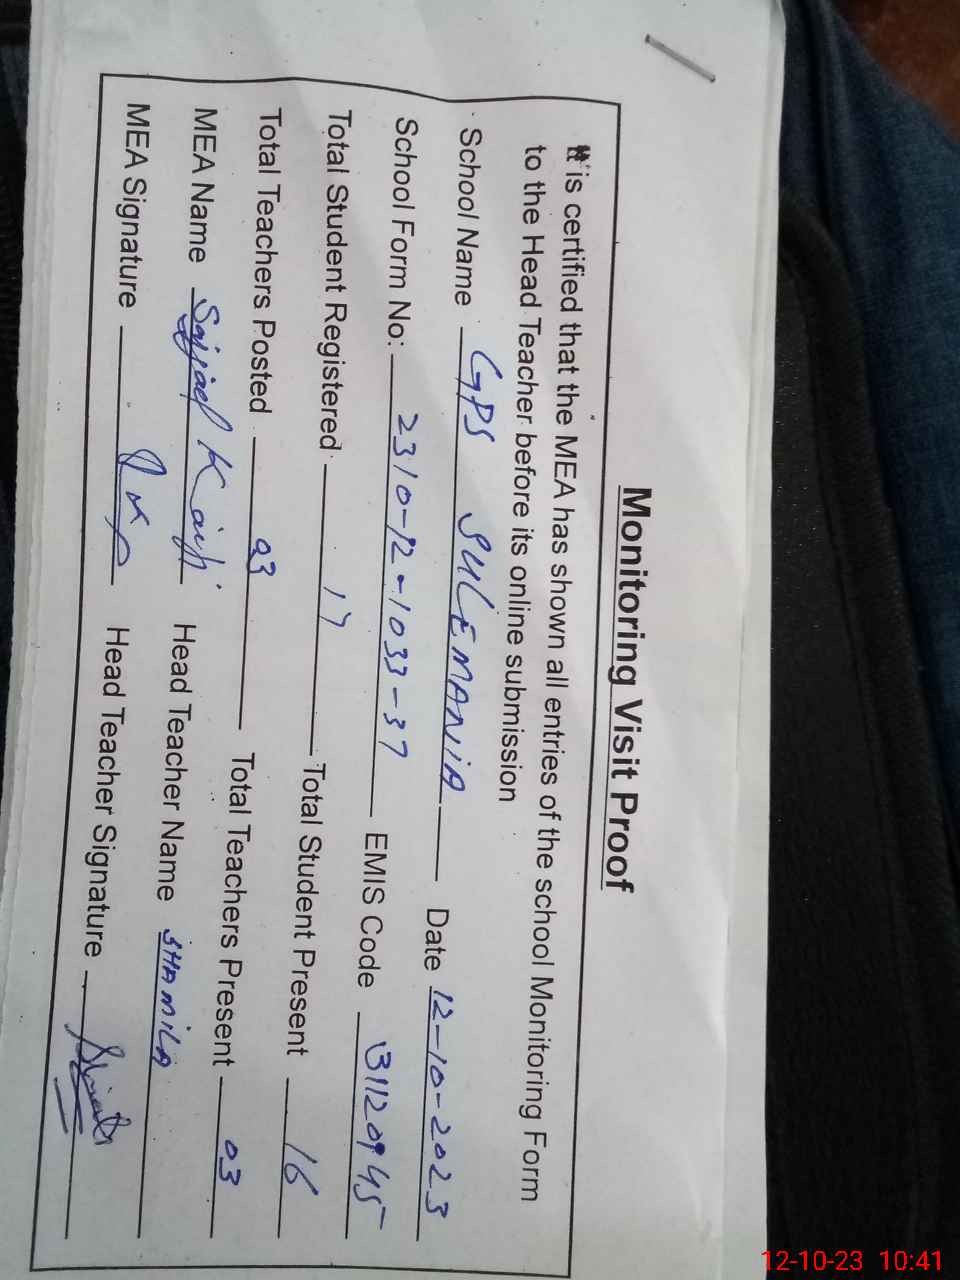 Monitoring Visit Proof
It is certified that the MEA has shown all entries of the school Monitoring Form
to the Head Teacher before its online submission
School Name GPS SULEMANIA Date 12-10-2023
School Form No: 2310-12-1033-37 EMIS Code 31120945
Total Student Registered 17 Total Student Present 16
Total Teachers Posted 03 Total Teachers Present 03
MEA Name Sajjad Head Teacher Name SHAMILA
MEA Signature Head Teacher Signature
12-10-23 10:41